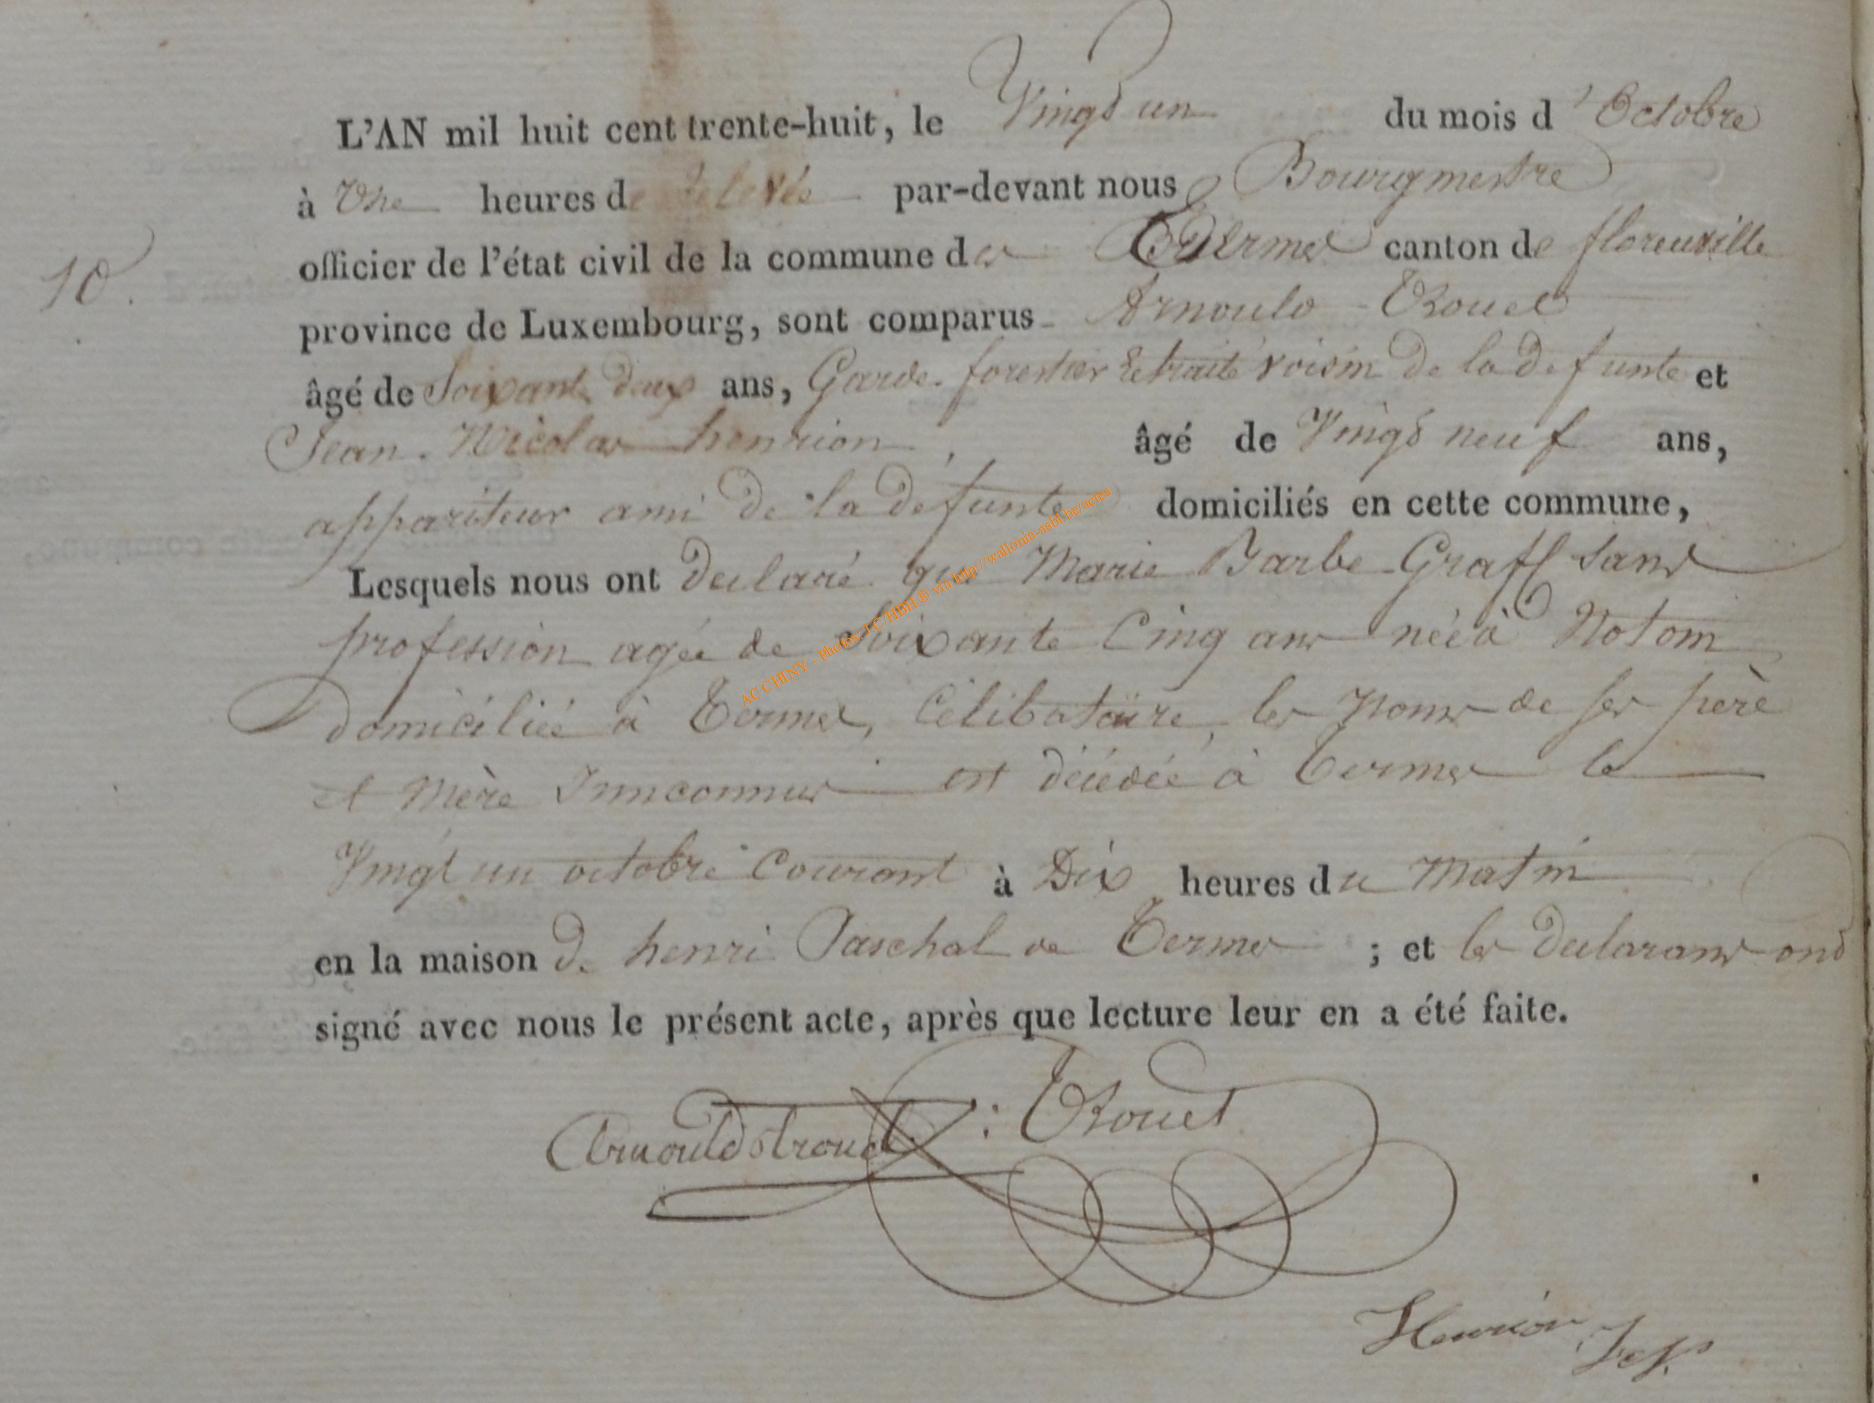 L'AN mil huit cent trente-huit, le Vingt un du mois d'Octobre
à Une heures de relevée par-devant nous Bourgmestre
officier de l'état civil de la commune de Termes canton de florenville
10.
province de Luxembourg, sont comparus Arnould Trouet
âgé de Soixante deux ans, Garde forestier retraité voisin de la defunte et
Jean Nicolas henrion, âgé de Vingt neuf ans,
appariteur ami de la defunte domiciliés en cette commune,
Lesquels nous ont declaré que Marie Barbe Graff sans
profession agée de Soixante Cinq ans née à Notom
domiciliée à Termes, Célibataire, les Noms de ses père
et Mère Innconnus est décédée à Termes le
Vingt un octobre Courant à Dix heures du Matin
en la maison de henri Paschal de Termes ; et les declarans ont
signé avec nous le présent acte, après que lecture leur en a été faite.
Arnould trouet : Trouet
Henrion